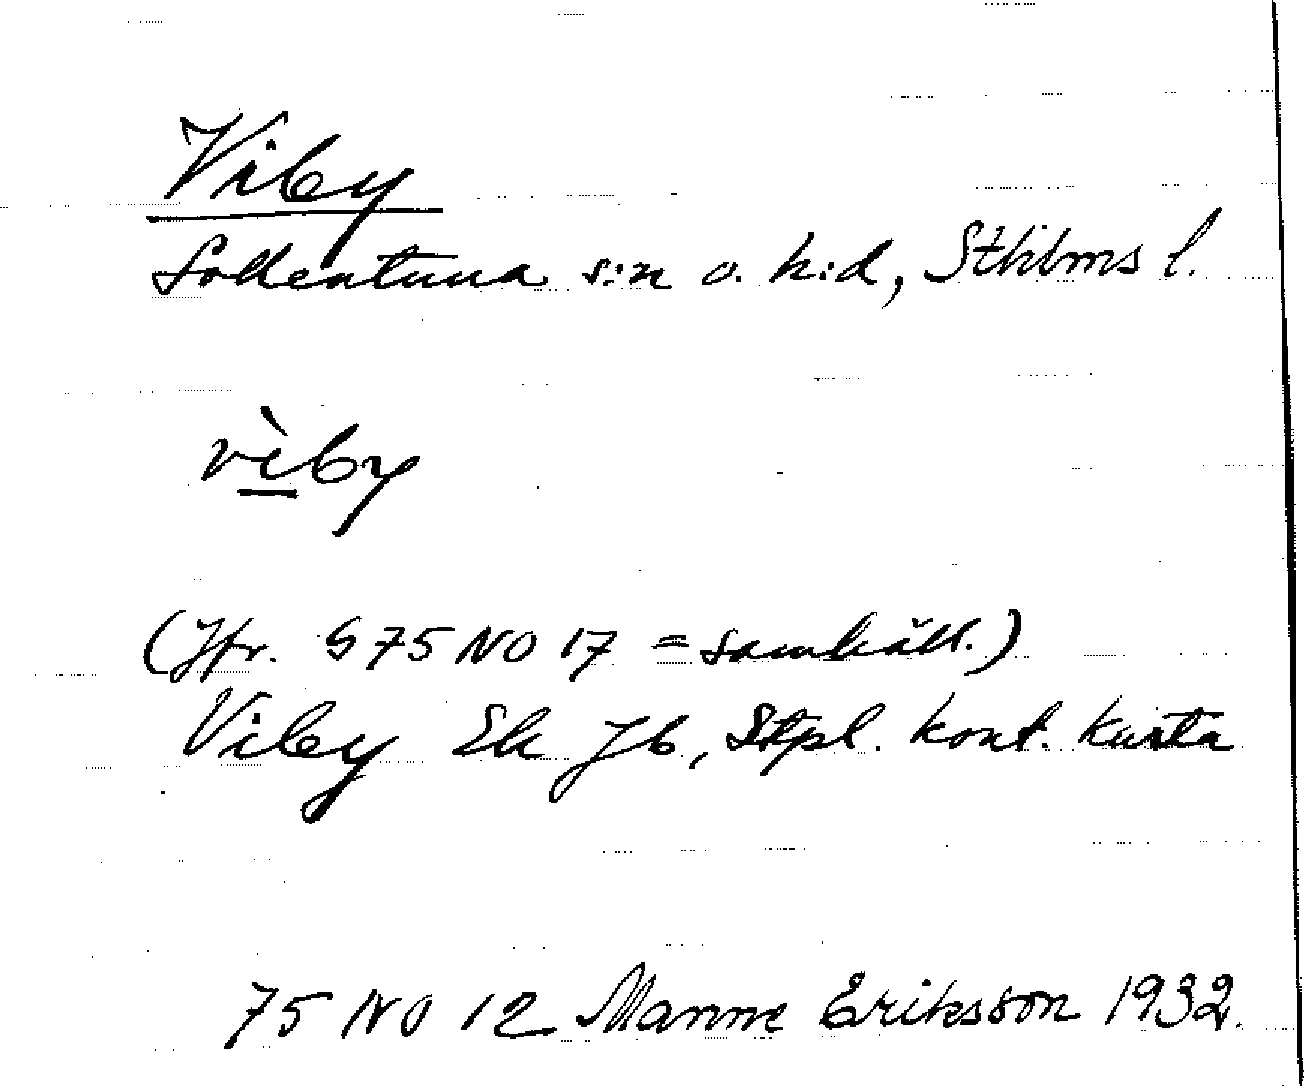 Viby
Sollentuna s:n o. h:d, Sthlms l.
vìby
(Jfr. S 75 NO 17 = samhäll.)
Viby Ek Jb, Stpl. kont. karta
75 NO 12 Manne Eriksson 1932.